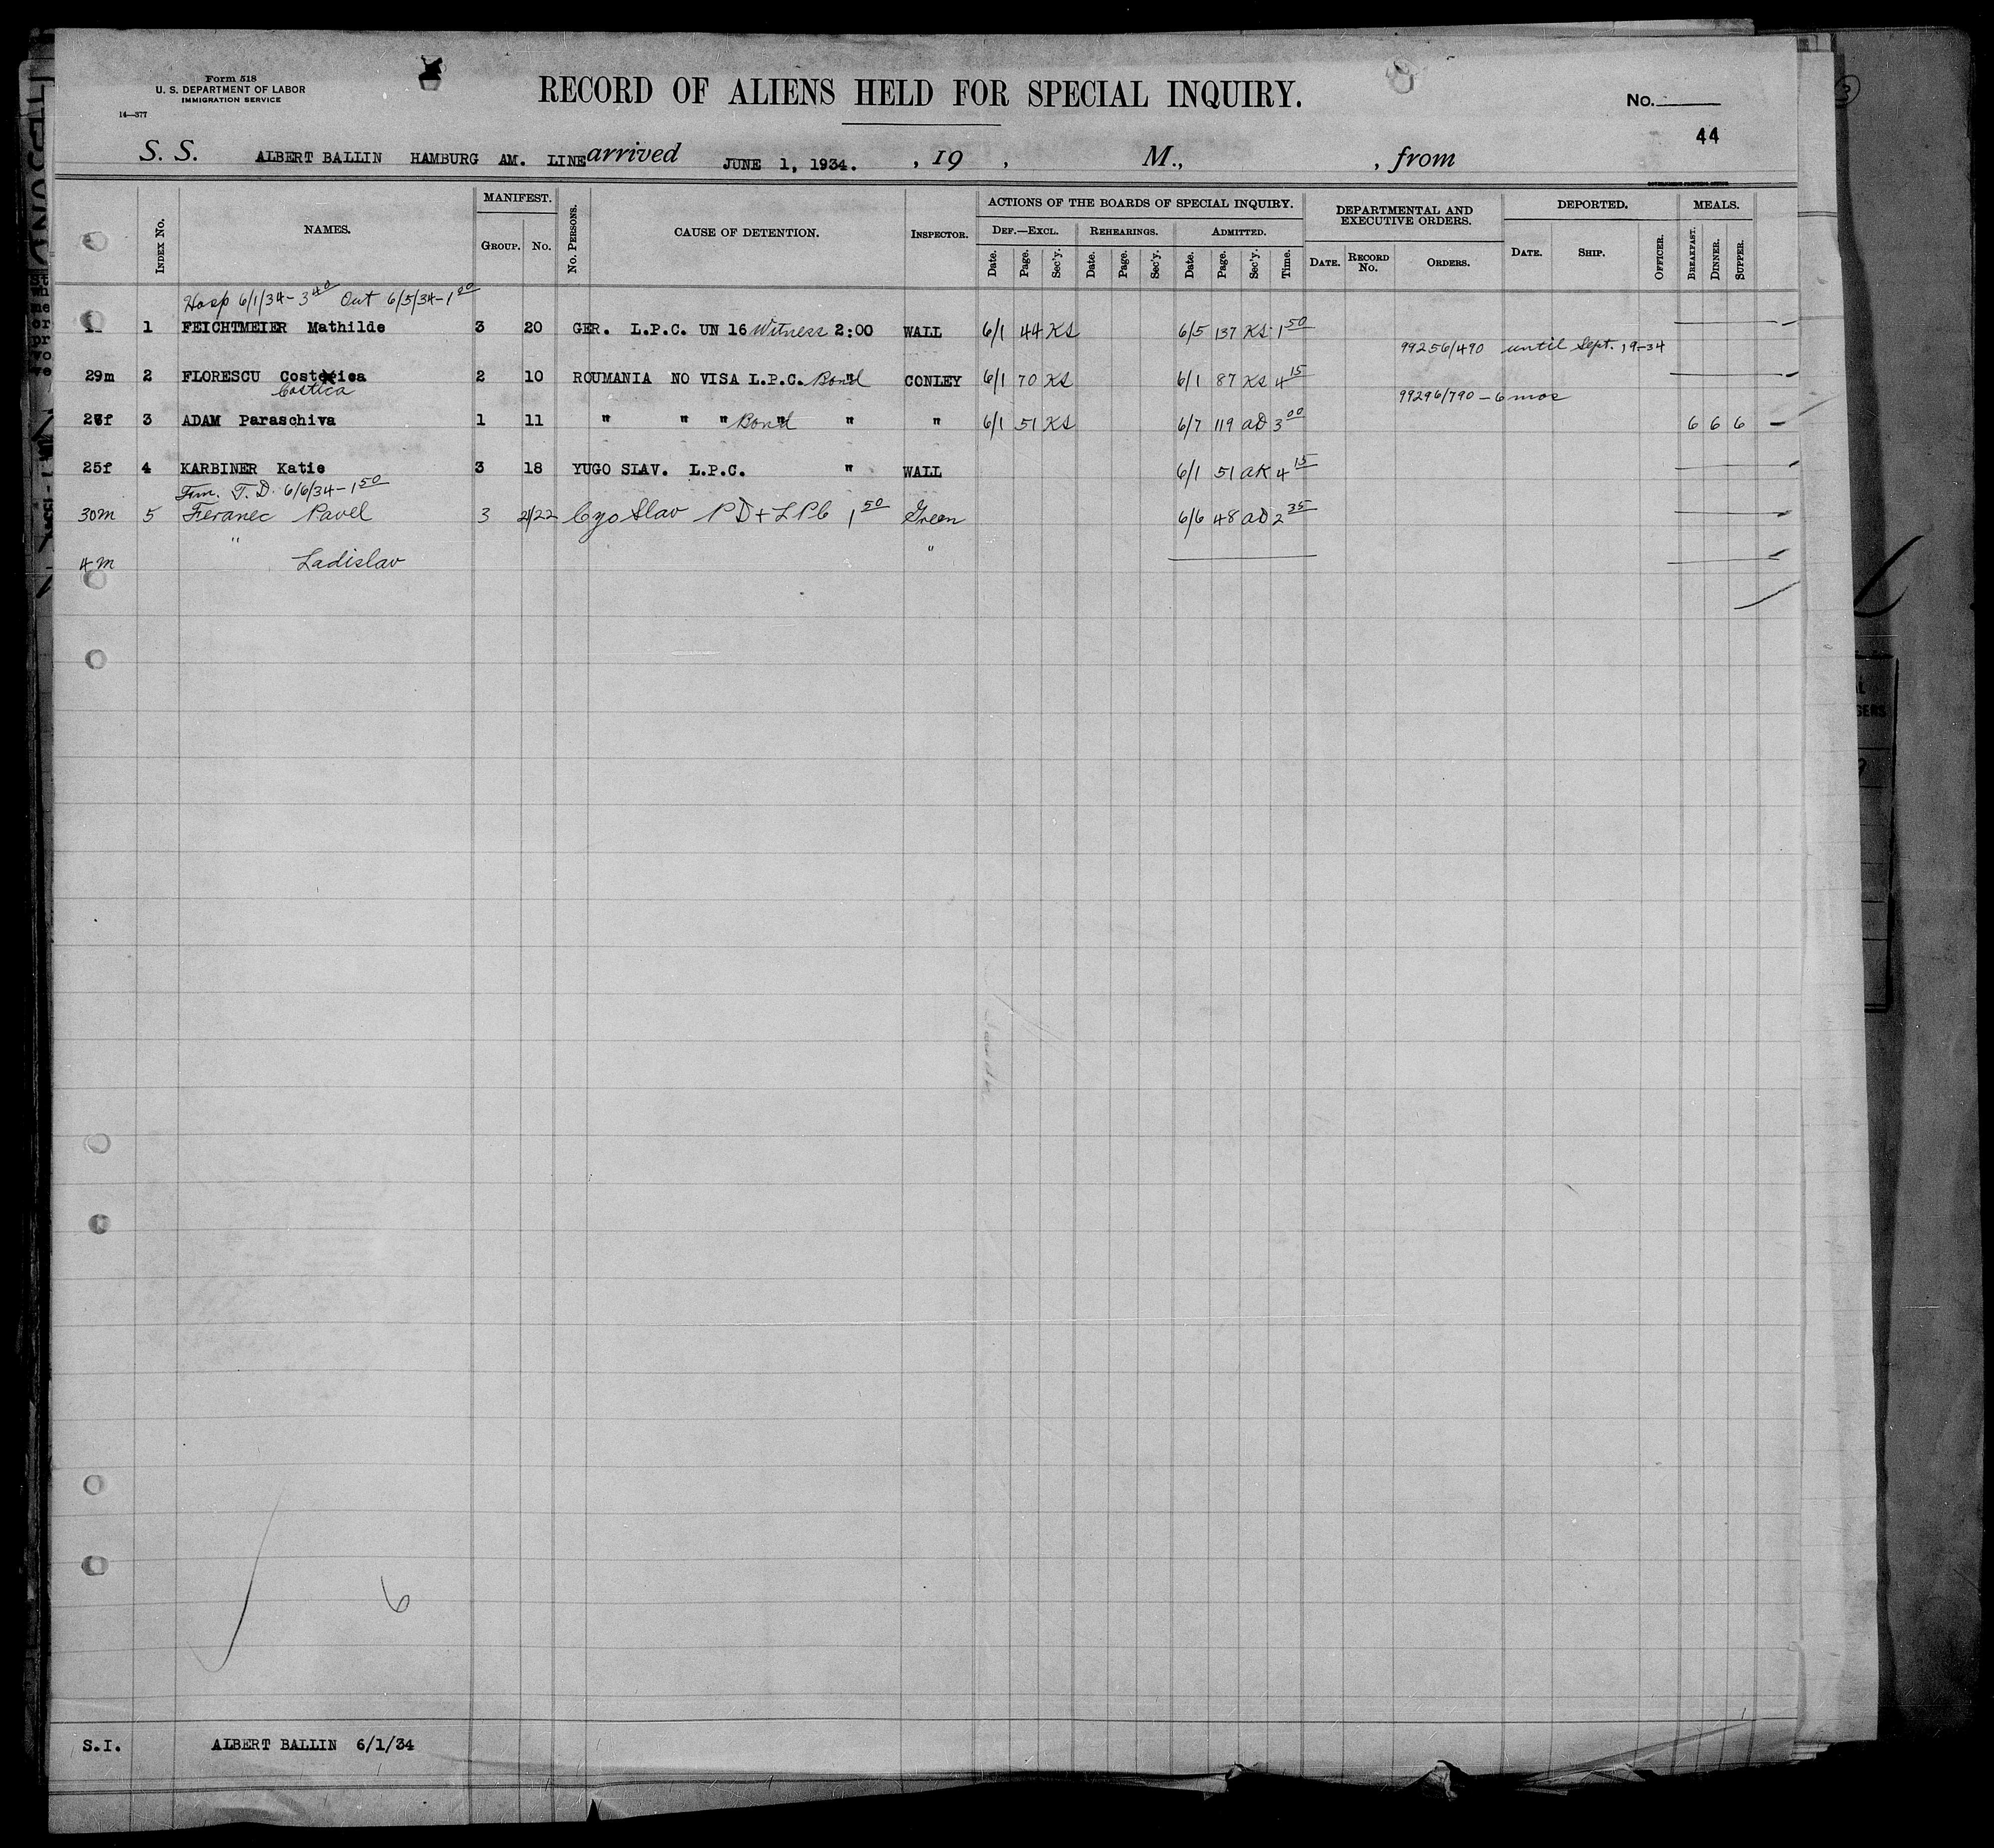 Form 518
U. S. DEPARTMENT OF LABOR
IMMIGRATION SERVICE
14—377
RECORD OF ALIENS HELD FOR SPECIAL INQUIRY.
No.
44
S. S. ALBERT BALLIN HAMBURG AM. LINE arrived JUNE 1, 1934. , 19 , M., , from
GOVERNMENT PRINTING OFFICE
Index No. NAMES. MANIFEST. Group. No. No. Persons. CAUSE OF DETENTION. Inspector. ACTIONS OF THE BOARDS OF SPECIAL INQUIRY. Def.—Excl. Date. Page. Sec'y. Rehearings. Date. Page. Sec'y. Admitted. Date. Page. Sec'y. Time. DEPARTMENTAL AND EXECUTIVE ORDERS. Date. Record No. Orders. DEPORTED. Date. Ship. Officer. MEALS. Breakfast. Dinner. Supper.
Hosp 6/1/34 - 3 40 Out 6/5/34 - 1 00
1 FEICHTMEIER Mathilde 3 20 GER. L.P.C. UN 16 Witness 2:00 WALL 6/1 44 KS 6/5 137 KS 1 50
99256/490 until Sept. 19-34
29m 2 FLORESCU Costeica 2 10 ROUMANIA NO VISA L.P.C. Bond " CONLEY 6/1 70 KS 6/1 87 KS 4 15
Costica
99296/790 - 6 mos
27f 3 ADAM Paraschiva 1 11 " " " Bond " " 6/1 51 KS 6/7 119 AD 3 00 6 6 6
25f 4 KARBINER Katie 3 18 YUGO SLAV. L.P.C. " WALL 6/1 51 AK 4 15
Fm. T. D. 6/6/34 - 1 50
30m 5 Feranec Pavel 3 21/22 Czo Slav PD + LPC 1 50 Green 6/6 48 AD 2 35
4m " Ladislav "
6
S.I. ALBERT BALLIN 6/1/34